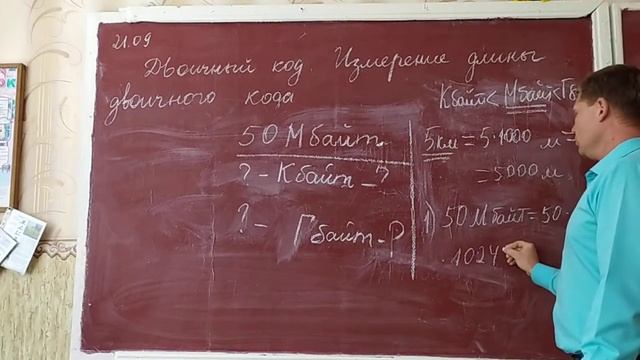 21.09
Двоичный код. Измерение длины
двоичного кода
Кбайт < Мбайт < Гб
50 Мбайт
? - Кбайт - ?
? - Гбайт - ?
5км = 5·1000 м =
= 5000 м
1) 50 Мбайт = 50 ·
· 1024